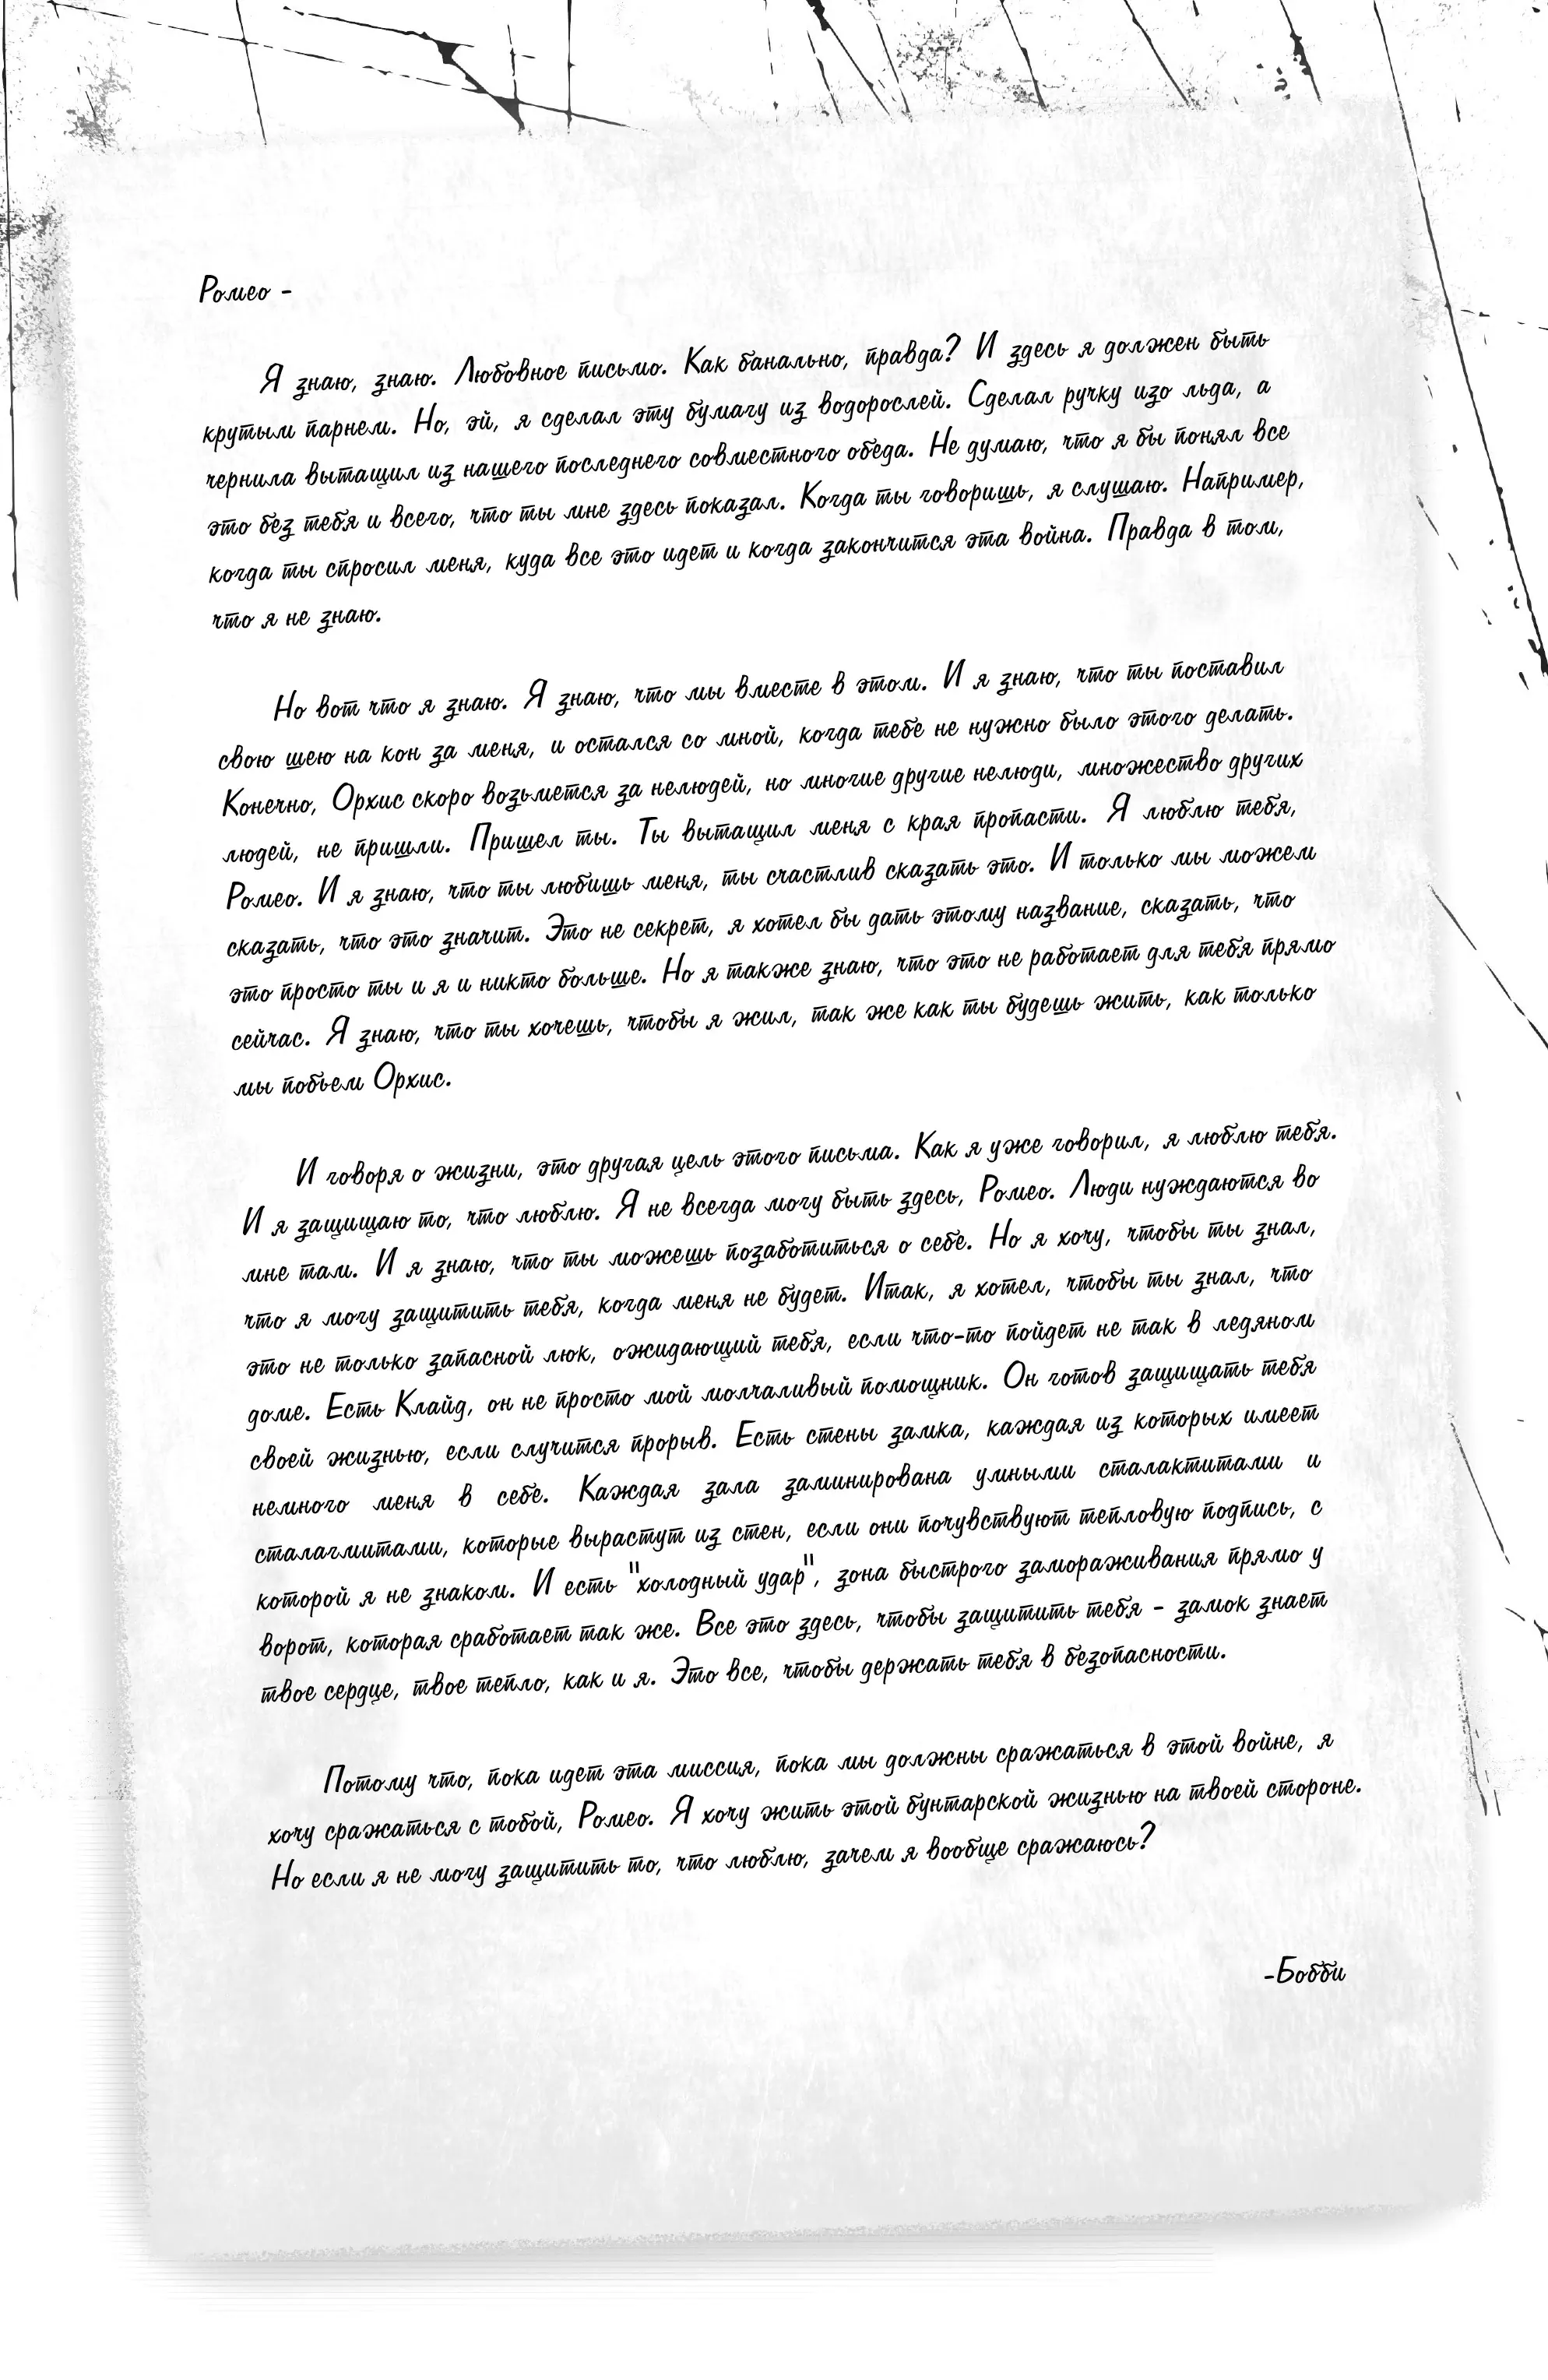 Ромео -
Я знаю, знаю. Любовное письмо. Как банально, правда? И здесь я должен быть
крутым парнем. Но, эй, я сделал эту бумагу из водорослей. Сделал ручку изо льда, а
чернила вытащил из нашего последнего совместного обеда. Не думаю, что я бы понял все
это без тебя и всего, что ты мне здесь показал. Когда ты говоришь, я слушаю. Например,
когда ты спросил меня, куда все это идет и когда закончится эта война. Правда в том,
что я не знаю.
Но вот что я знаю. Я знаю, что мы вместе в этом. И я знаю, что ты поставил
свою шею на кон за меня, и остался со мной, когда тебе не нужно было этого делать.
Конечно, Орхис скоро возьмется за нелюдей, но многие другие нелюди, множество других
людей, не пришли. Пришел ты. Ты вытащил меня с края пропасти. Я люблю тебя,
Ромео. И я знаю, что ты любишь меня, ты счастлив сказать это. И только мы можем
сказать, что это значит. Это не секрет, я хотел бы дать этому название, сказать, что
это просто ты и я и никто больше. Но я также знаю, что это не работает для тебя прямо
сейчас. Я знаю, что ты хочешь, чтобы я жил, так же как ты будешь жить, как только
мы побьем Орхис.
И говоря о жизни, это другая цель этого письма. Как я уже говорил, я люблю тебя.
И я защищаю то, что люблю. Я не всегда могу быть здесь, Ромео. Люди нуждаются во
мне там. И я знаю, что ты можешь позаботиться о себе. Но я хочу, чтобы ты знал,
что я могу защитить тебя, когда меня не будет. Итак, я хотел, чтобы ты знал, что
это не только запасной люк, ожидающий тебя, если что-то пойдет не так в ледяном
доме. Есть Клайд, он не просто мой молчаливый помощник. Он готов защищать тебя
своей жизнью, если случится прорыв. Есть стены замка, каждая из которых имеет
немного меня в себе. Каждая зала заминирована умными сталактитами и
сталагмитами, которые вырастут из стен, если они почувствуют тепловую подпись, с
которой я не знаком. И есть "холодный удар", зона быстрого замораживания прямо у
ворот, которая сработает так же. Все это здесь, чтобы защитить тебя - замок знает
твое сердце, твое тепло, как и я. Это все, чтобы держать тебя в безопасности.
Потому что, пока идет эта миссия, пока мы должны сражаться в этой войне, я
хочу сражаться с тобой, Ромео. Я хочу жить этой бунтарской жизнью на твоей стороне.
Но если я не могу защитить то, что люблю, зачем я вообще сражаюсь?
-Бобби